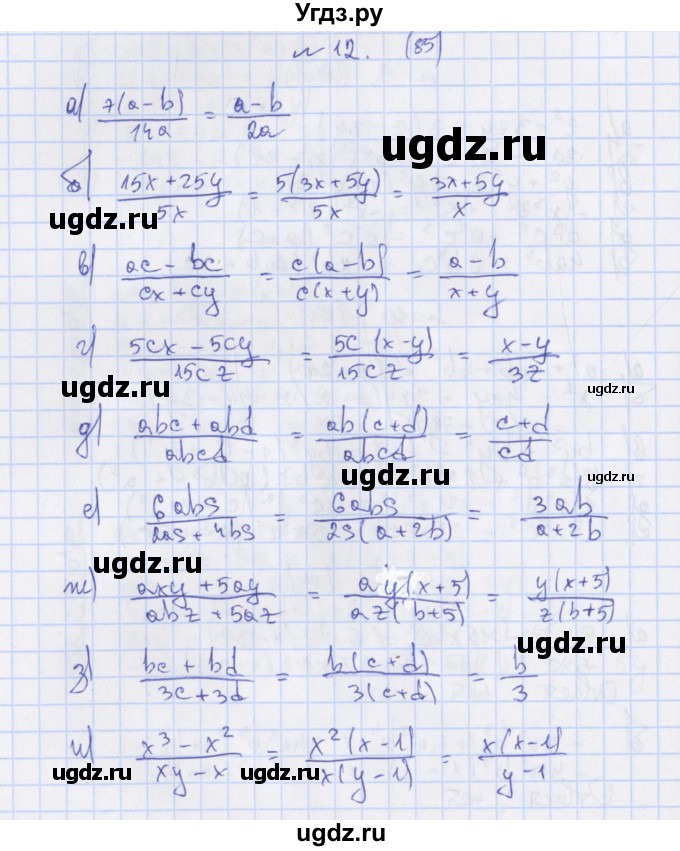 Угдз.ру
№12. (85)
а) 7(a-b)/14a = a-b/2a
ugdz.ru
б) 15x+25y/5x = 5(3x+5y)/5x = 3x+5y/x
ugdz.ru
в) ac-bc/cx+cy = c(a-b)/c(x+y) = a-b/x+y
ugdz.ru
г) 5cx-5cy/15cz = 5c(x-y)/15cz = x-y/3z
ugdz.ru
ugdz.ru
д) abc+abd/abcd = ab(c+d)/abcd = c+d/cd
ugdz.ru
ugdz.ru
е) 6abs/2as+4bs = 6abs/2s(a+2b) = 3ab/a+2b
ugdz.ru
ж) axy+5ay/abz+5az = ay(x+5)/az(b+5) = y(x+5)/z(b+5)
ugdz.ru
з) bc+bd/3c+3d = b(c+d)/3(c+d) = b/3
и) x³-x²/xy-x = x²(x-1)/x(y-1) = x(x-1)/y-1
ugdz.ru
ugdz.ru
ugdz.ru
ugdz.ru